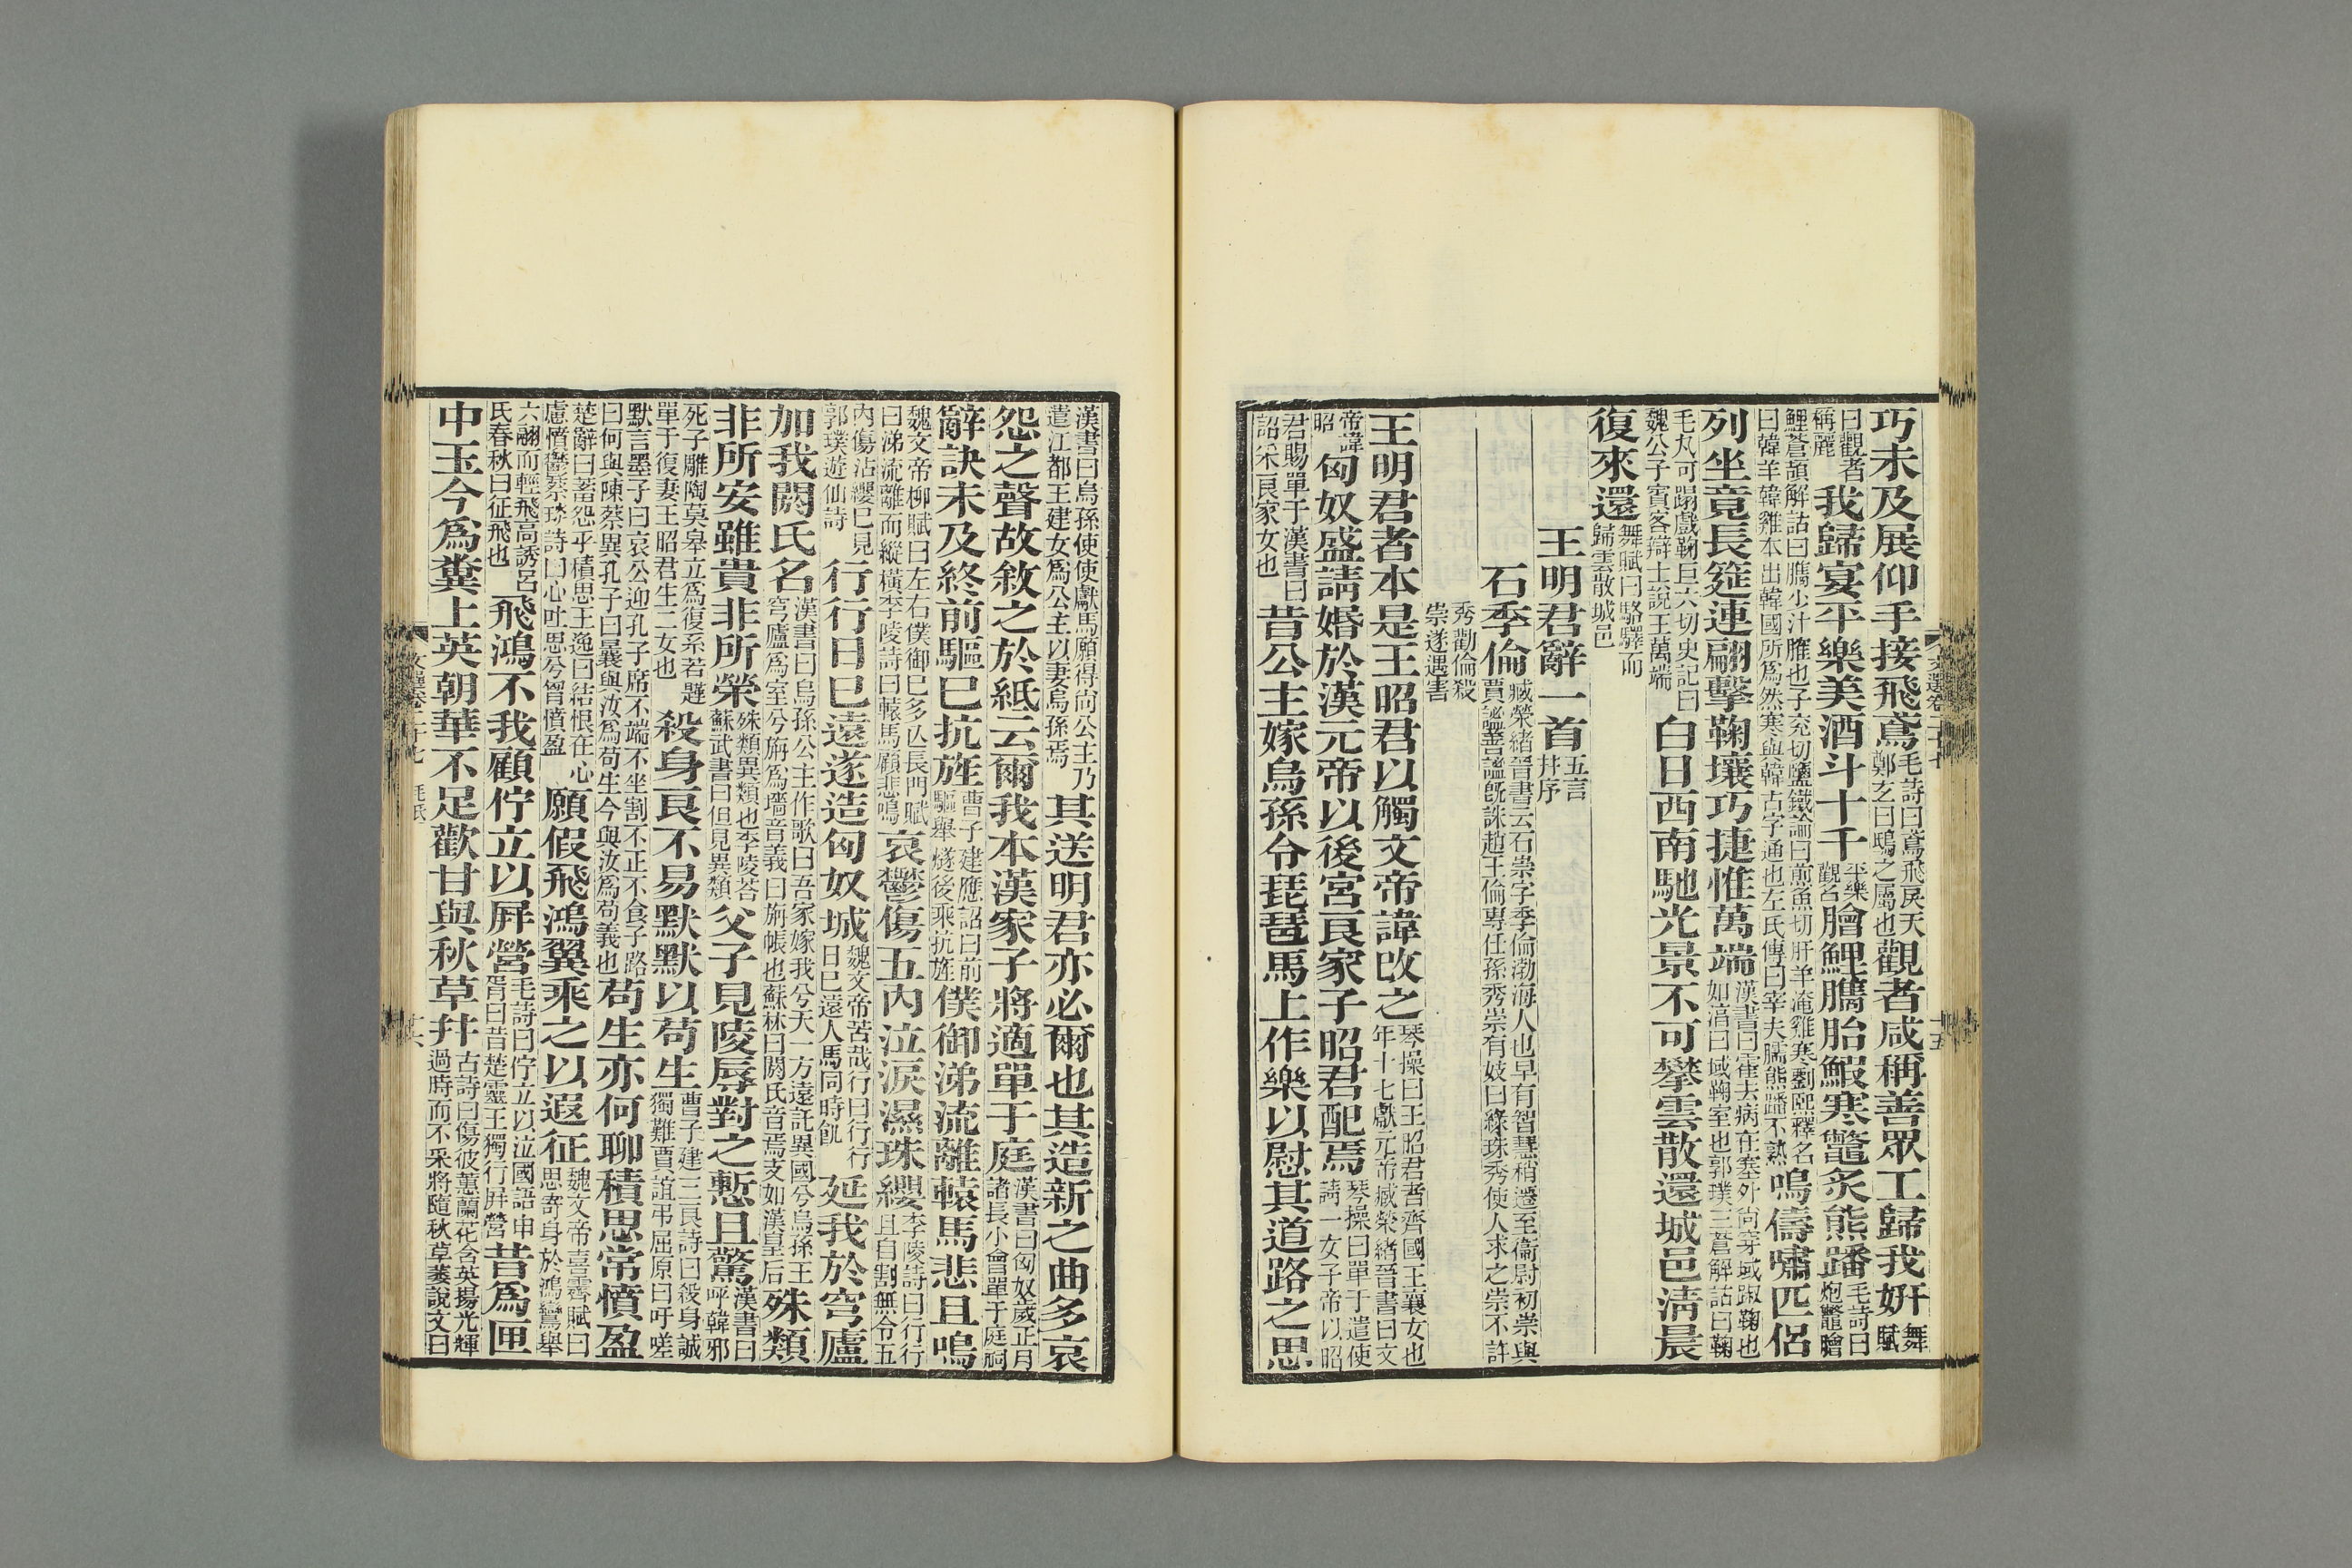 巧未及展仰手接飛鳶毛詩曰鳶飛戾天鄭玄曰鴟之屬也觀者咸稱善眾工歸我妍舞賦
曰觀者稱麗我歸宴平樂美酒斗十千平樂觀名膾鯉臇胎鰕寒鼈炙熊蹯毛詩曰炰鼈膾
鯉蒼頡解詁曰臇少汁臛也子兖切鹽鐵論曰煎魚切肝羊淹雞寒劉熙釋名曰韓羊韓雞本出韓國所為然寒與韓古字通也左氏傳曰宰夫胹熊蹯不熟鳴儔嘯匹侶
列坐竟長筵連翩擊鞠壤巧捷惟萬端漢書曰霍去病在塞外尚穿域蹴鞠也如淳曰域鞠室也郭璞三蒼解詁曰鞠
毛丸可蹋戲鞠巨六切史記曰魏公子賓客辯士說王萬端白日西南馳光景不可攀雲散還城邑清晨
復來還舞賦曰駱驛而歸雲散城邑
王明君辭一首五言并序
石季倫臧榮緒晉書云石崇字季倫渤海人也早有智慧稍遷至衞尉初崇與賈謐善謐既誅趙王倫專任孫秀崇有妓曰綠珠秀使人求之崇不許
秀勸倫殺崇遂遇害
王明君者本是王昭君以觸文帝諱改之琴操曰王昭君者齊國王襄女也年十七獻元帝臧榮緒晉書曰文
帝諱昭匈奴盛請婚於漢元帝以後宮良家子昭君配焉琴操曰單于遣使請一女子帝以昭
君賜單于漢書曰詔采良家女也昔公主嫁烏孫令琵琶馬上作樂以慰其道路之思
漢書曰烏孫使使獻馬願得尚公主乃遣江都王建女為公主以妻烏孫焉其送明君亦必爾也其造新之曲多哀
怨之聲故敘之於紙云爾我本漢家子將適單于庭漢書曰匈奴歲正月諸長小會單于庭祠
辭訣未及終前驅已抗旌曹子建應詔曰前驅舉燧後乘抗旌僕御涕流離轅馬悲且鳴
魏文帝柳賦曰左右僕御已多亾長門賦曰涕流離而縱橫李陵詩曰轅馬顧悲鳴哀鬱傷五內泣淚濕珠纓李陵詩曰行行且自割無令五
內傷沾纓已見郭璞遊仙詩行行日已遠遂造匈奴城魏文帝苦哉行曰行行日已遠人馬同時飢延我於穹廬
加我閼氏名漢書曰烏孫公主作歌曰吾家嫁我兮天一方遠託異國兮烏孫王穹廬為室兮旃為墻音義曰旃帳也蘇林曰閼氏音焉支如漢皇后殊類
非所安雖貴非所榮殊類異類也李陵荅蘇武書曰但見異類父子見陵辱對之慙且驚漢書曰呼韓邪
死子雕陶莫皋立為復系若鞮單于復妻王昭君生二女也殺身良不易默默以苟生曹子建三良詩曰殺身誠獨難賈誼弔屈原曰吁嗟
默言墨子曰哀公迎孔子席不端不坐割不正不食子路曰何與陳蔡異孔子曰曩與汝為苟生今與汝為苟義也苟生亦何聊積思常憤盈
楚辭曰蓄怨乎積思王逸曰結恨在心慮憤鬱蔡琰詩曰心吐思兮胷憤盈願假飛鴻翼乘之以遐征魏文帝喜霽賦曰思寄身於鴻鸞舉
六翮而輕飛高誘呂氏春秋曰征飛也飛鴻不我顧佇立以屏營毛詩曰佇立以泣國語申胥曰昔楚靈王獨行屏營昔為匣
中玉今為糞上英朝華不足歡甘與秋草并古詩曰傷彼蕙蘭花含英揚光輝過時而不采將隨秋草萎說文曰